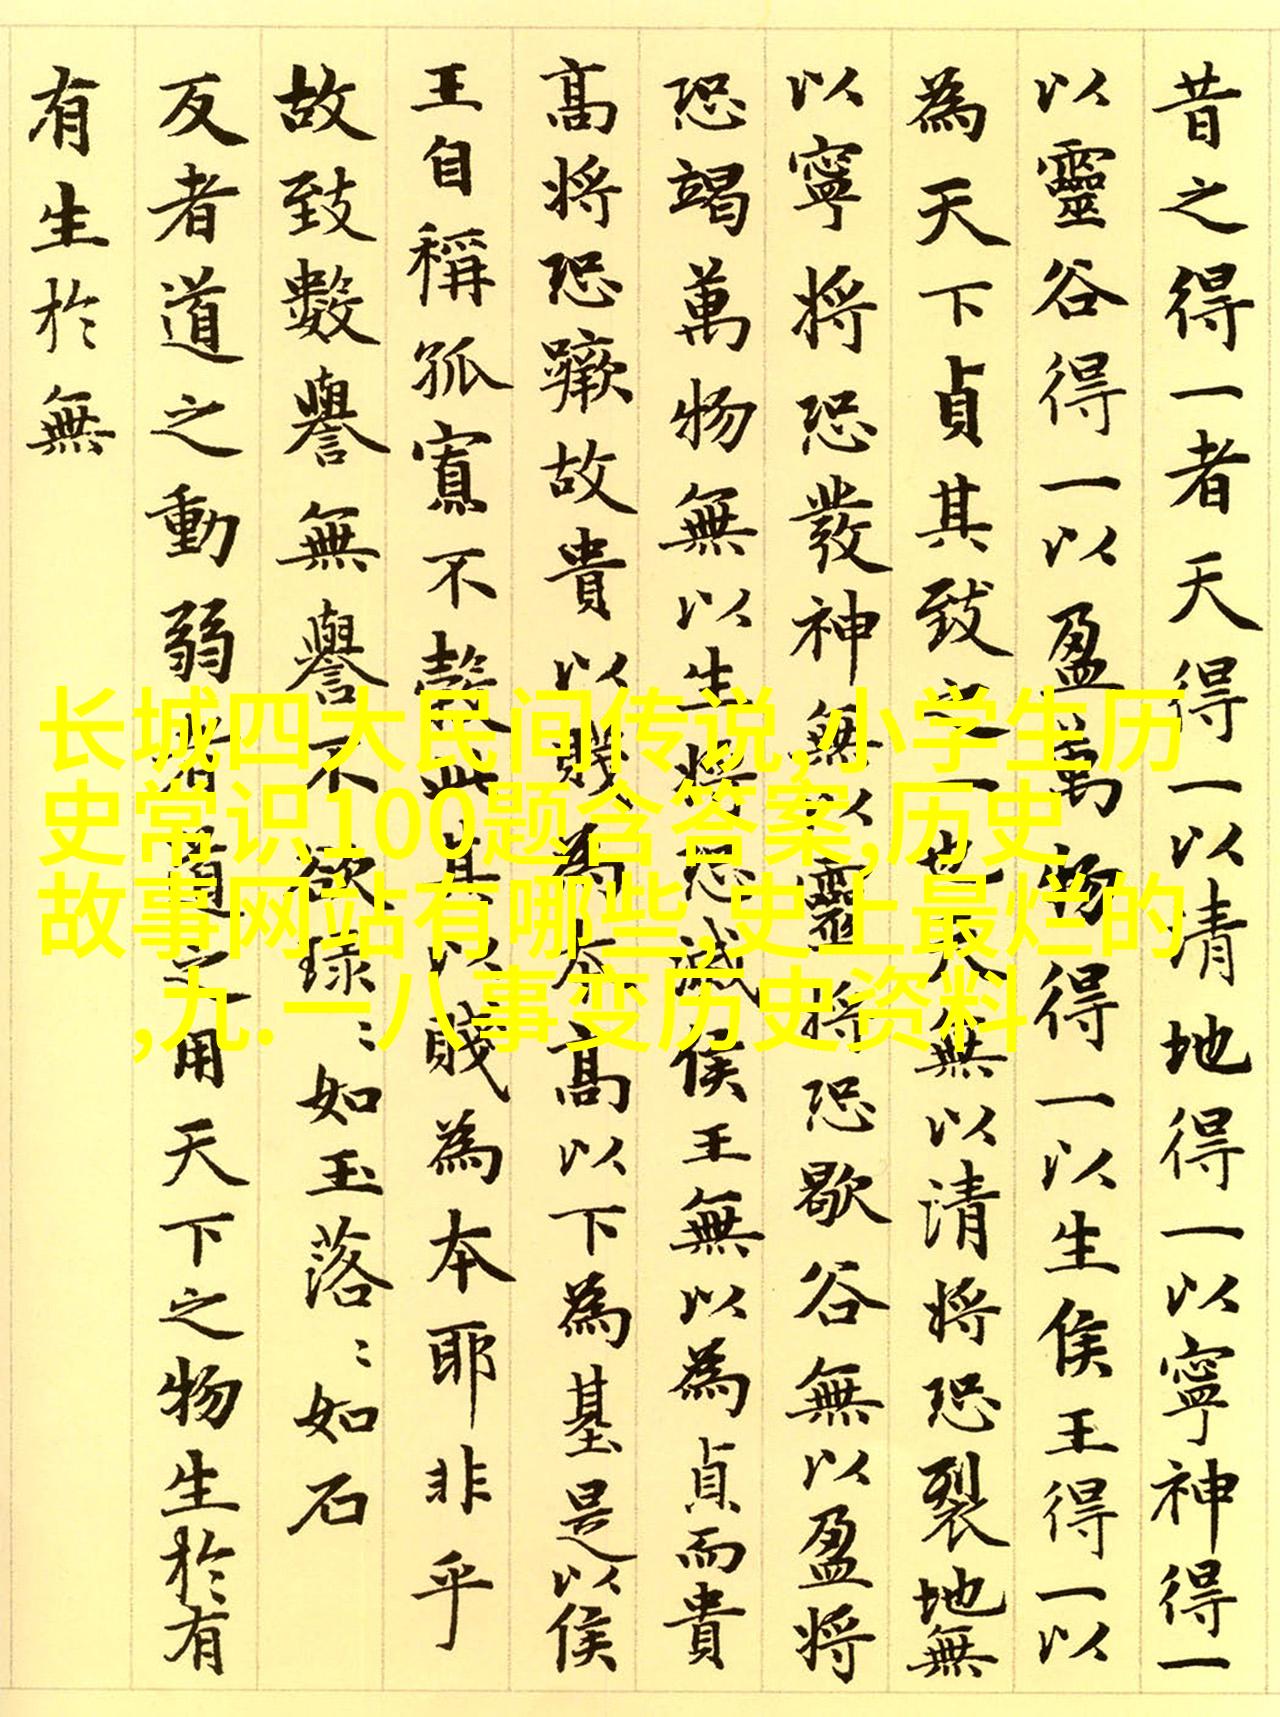 昔之得一者天得一以清地得一以寧神得一
以靈谷得一以盈萬物得一以生侯王得一以
為天下貞其致之一也天無以清将恐裂地無
以寧将恐發神無以靈将恐歇谷無以盈将
恐竭萬物無以生将恐滅侯王無以為貞而貴
高将恐蹶故貴以賤為本高以下為基是以侯
王自稱孤寡不穀此其以賤為本耶非乎
故致數譽無譽不欲琭〻如玉落〻如石
反者道之動弱者道之用天下之物生於有
有生於無
长城四大民间传说,小学生历
史常识100题含答案,历史
故事网站有哪些,史上最烂的
,九.一八事变历史资料